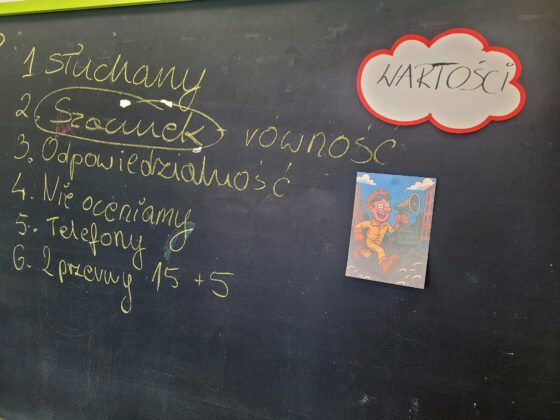 1 Słuchamy
2. Szacunek - równość
3. Odpowiedzialność
4. Nie oceniamy
5. Telefony
6. 2 przerwy 15 + 5
WARTOŚCI